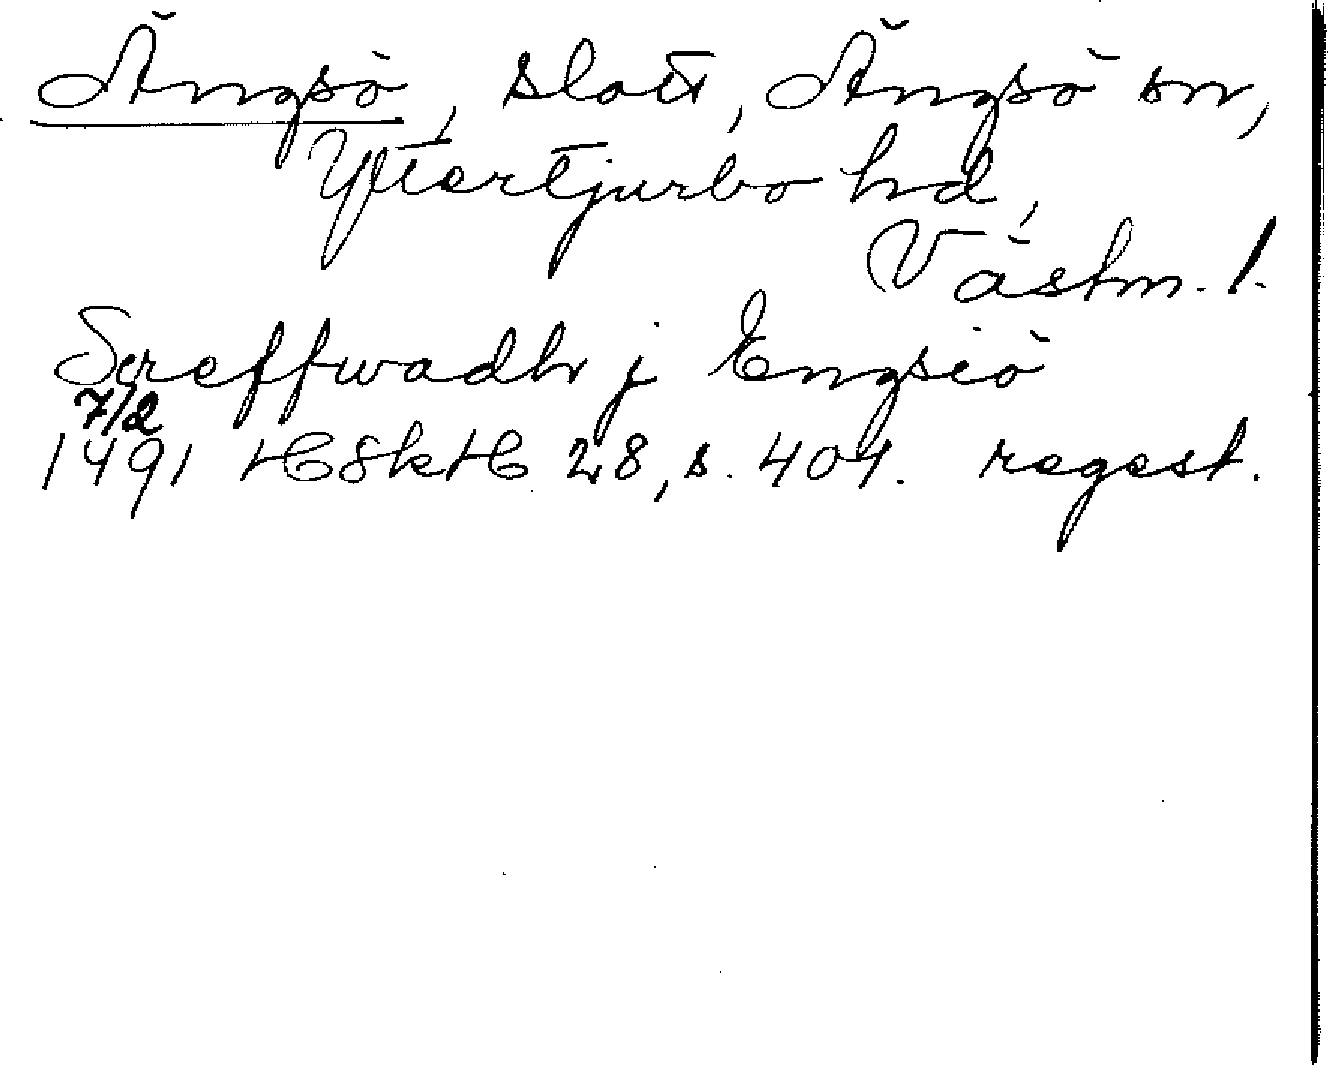 Ängsö, slott, Ängsö sn,
Yttertjurbo hd,
Västm. l.
Screffwadh j Engsiö
7/2
1491 HSkH 28, s. 404. regest.